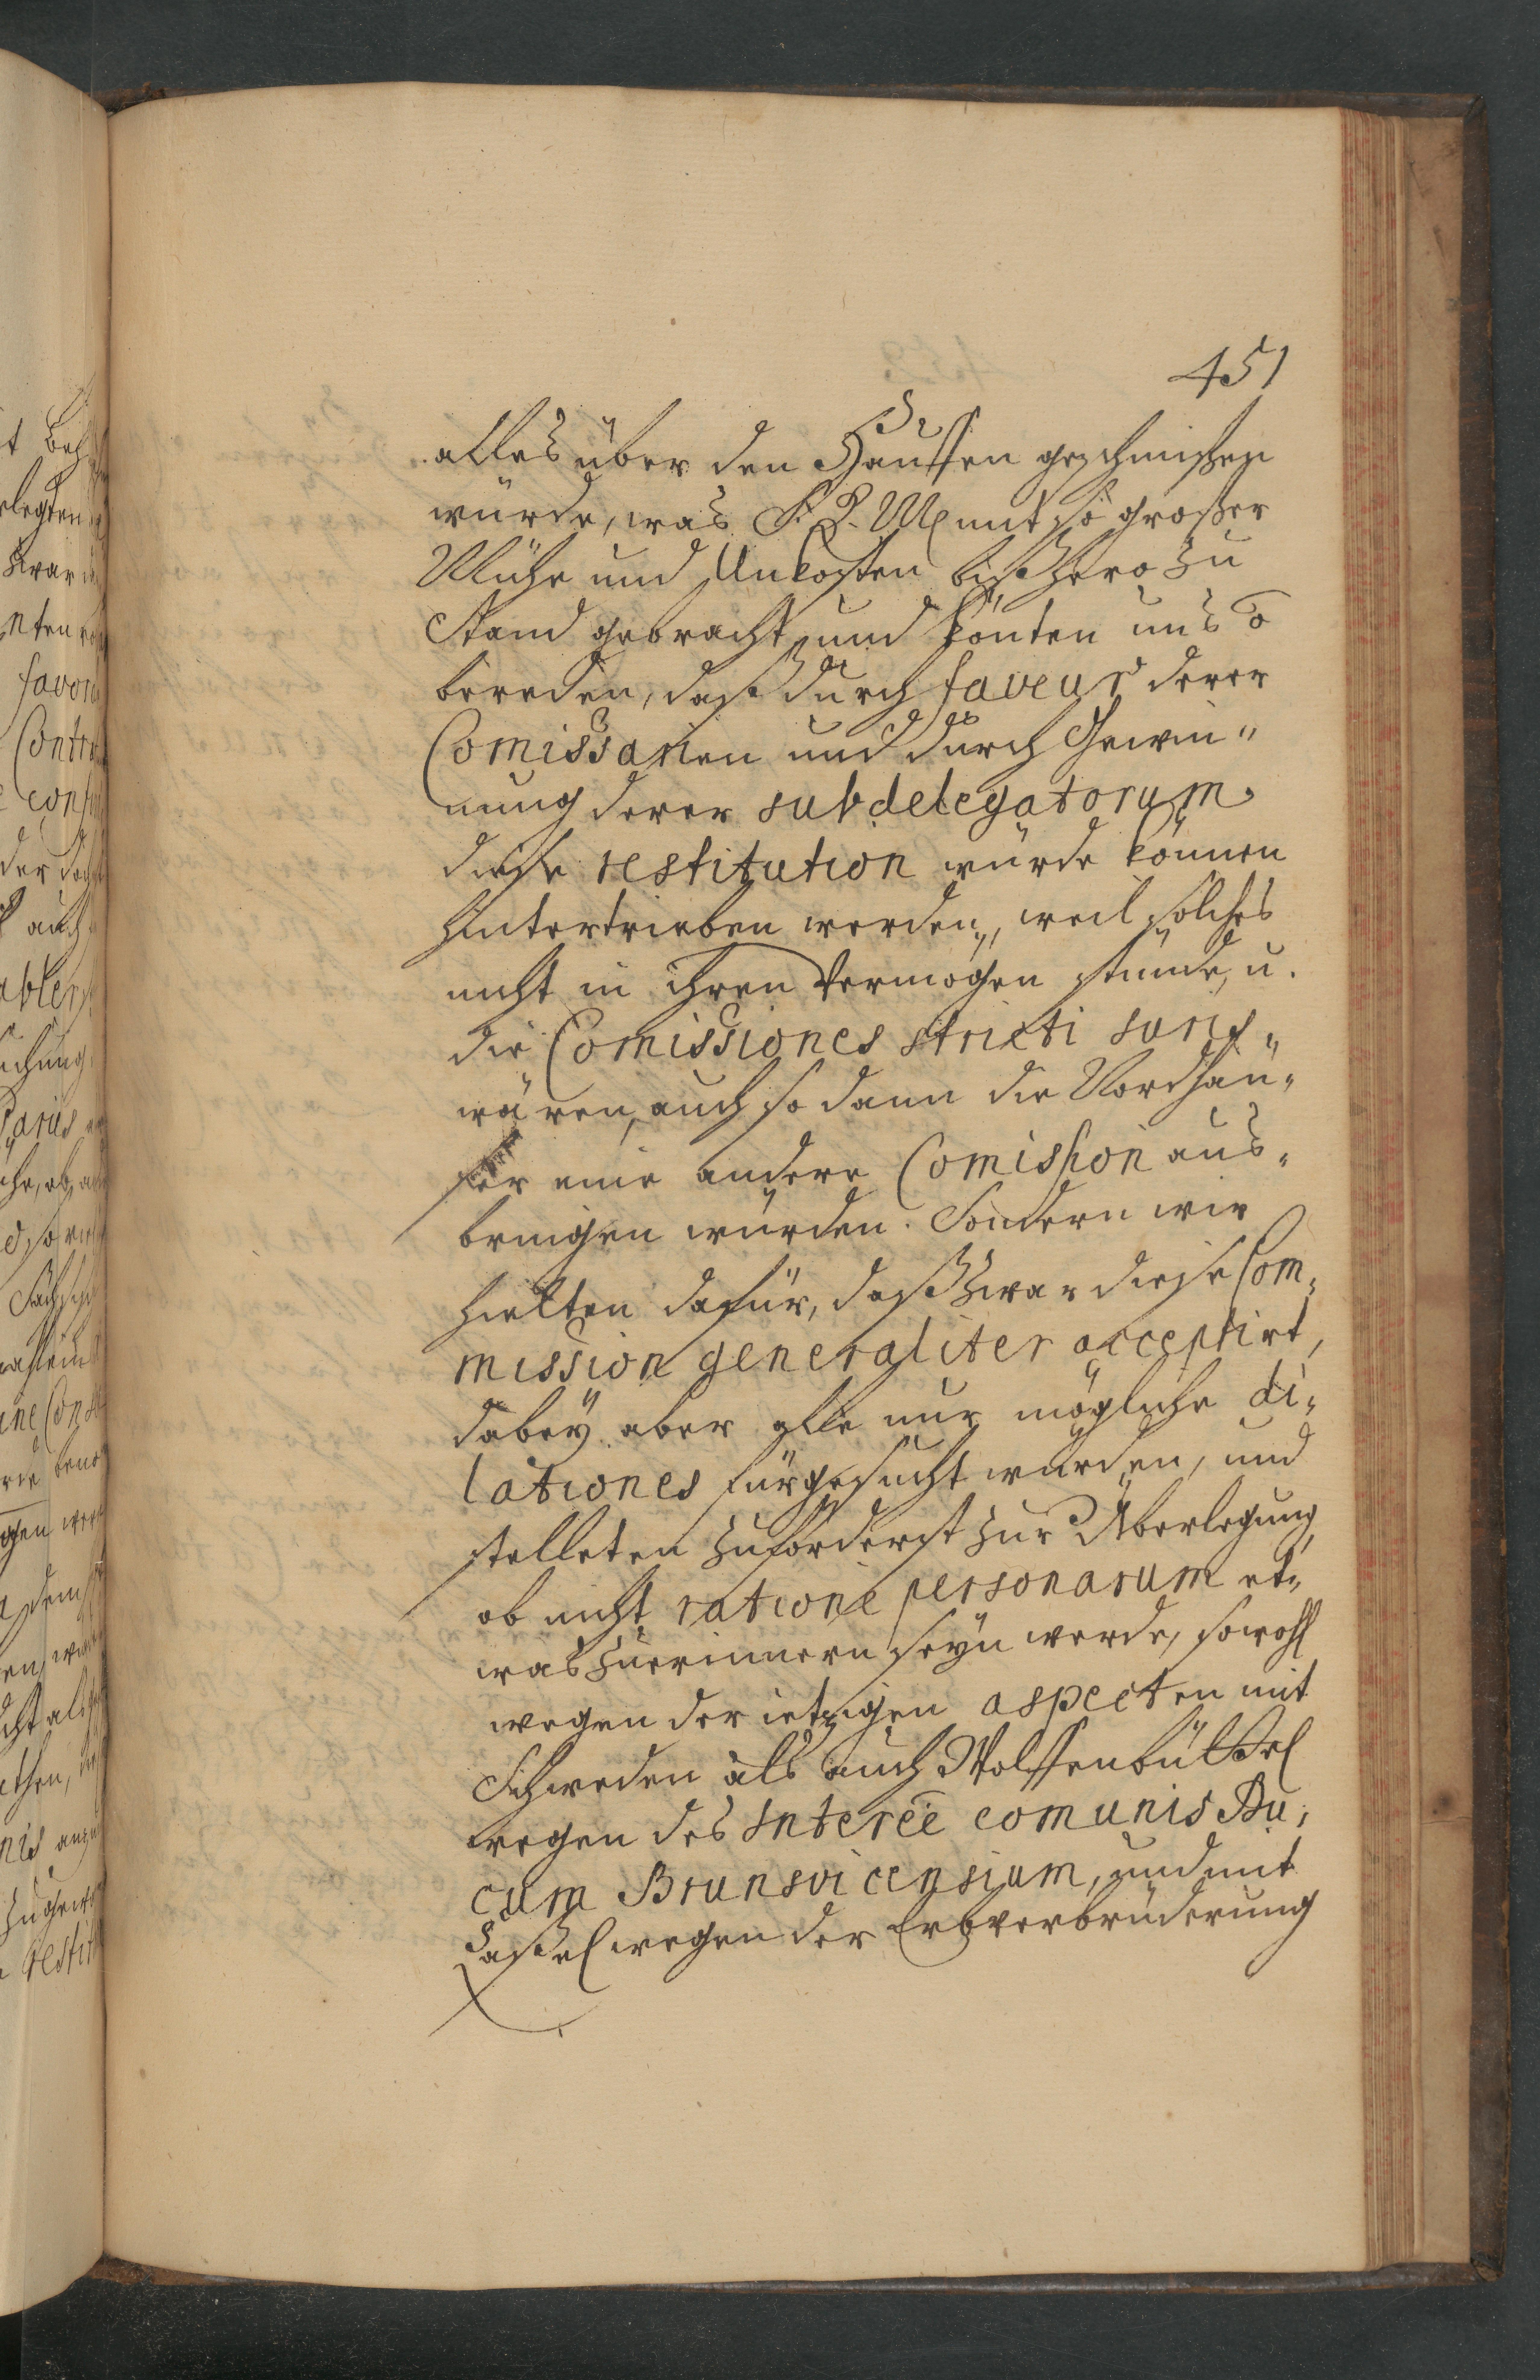 451
alles über den Hauffen geschmißen
würde, was S. K. M. mit so großer
Mühe und Unkosten bißhero zu
Stand gebracht, und könten uns
bereden, daß durch faveur derer
Comissarien und durch Gewin„
nung derer subdelegatorum
diese restitution würde können
hintertrieben werden, weil solches
nicht in ihren Vermögen stünde, u.
die Comissiones stricti Juris
wären, auch so dann die Nordhäu„
ser eine andere Comission aus„
bringen würden. Sondern wir
hielten dafür, daß zwar diese Com„
mission generaliter acceptirt,
dabey aber alle nur mögliche di„
lationes fürgesucht würden, und
stelleten zuförderst zur Überlegung,
ob nicht ratione personarum et„
was zuerinnern seyn werde, sowohl
wegen der ietzigen aspecten mit
Schweden als auch Wolffenbüttel
wegen des Interee comunis Du„
cum Brunsvicensium, und mit
Caßel wegen der Erbverbrüderung